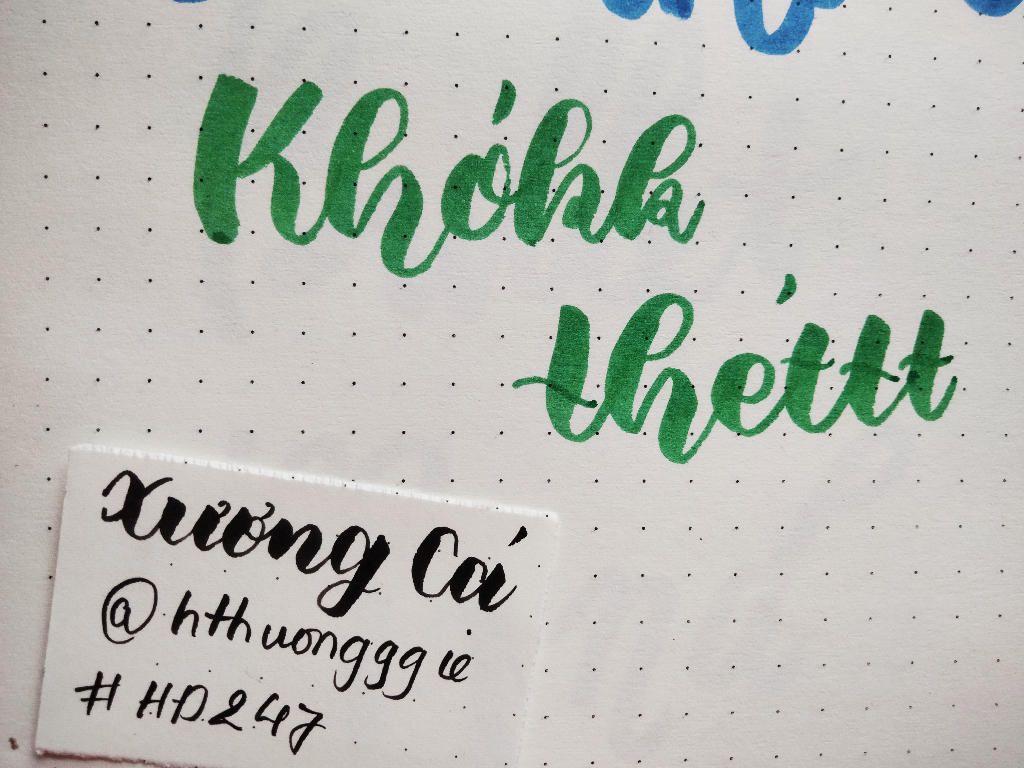 Khóhk
théttt
Xương Cá
@hthuongggie
#HD247